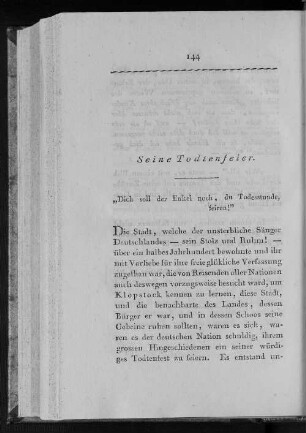 144
Seine Todtenfeier.
„Dich soll der Enkel noch, du Todesstunde,
feiren!"
Die Stadt, welche der unsterbliche Sänger
Deutschlandes — sein Stolz und Ruhm! —
über ein halbes Jahrhundert bewohnte und ihr
mit Vorliebe für ihre freie glükliche Verfassung
zugethan war, die von Reisenden aller Nationen
auch deswegen vorzugsweise besucht ward, um
Klopstock kennen zu lernen, diese Stadt,
und die benachbarte des Landes, dessen
Bürger er war, und in dessen Schoos seine
Gebeine ruhen sollten, waren es sich, wa-
ren es der deutschen Nation schuldig, ihrem
grossen Hingeschiedenen ein seiner würdi-
ges Todtenfest zu feiern. Es entstand un-